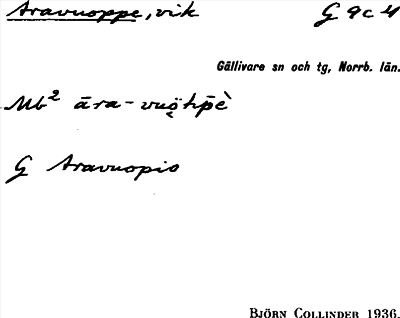 Aravuoppe, vik G 9c4
Gällivare sn och tg, Norrb. län.
Mb² āra-vuo̤̯ʜp̄è
G Aravuopio
BJÖRN COLLINDER 1936.